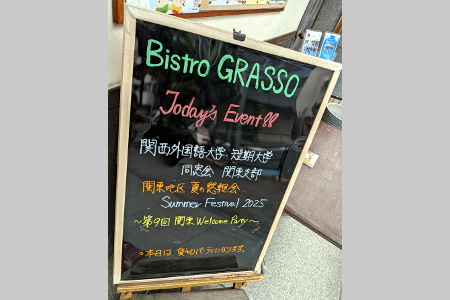 Bistro GRASSO
Today's Event!!
関西外国語大学・短期大学
同窓会 関東支部
関東地区 夏の懇親会
Summer Festival 2025
～第9回 関東 Welcome Party～
○本日は 貸切りパーティになります。